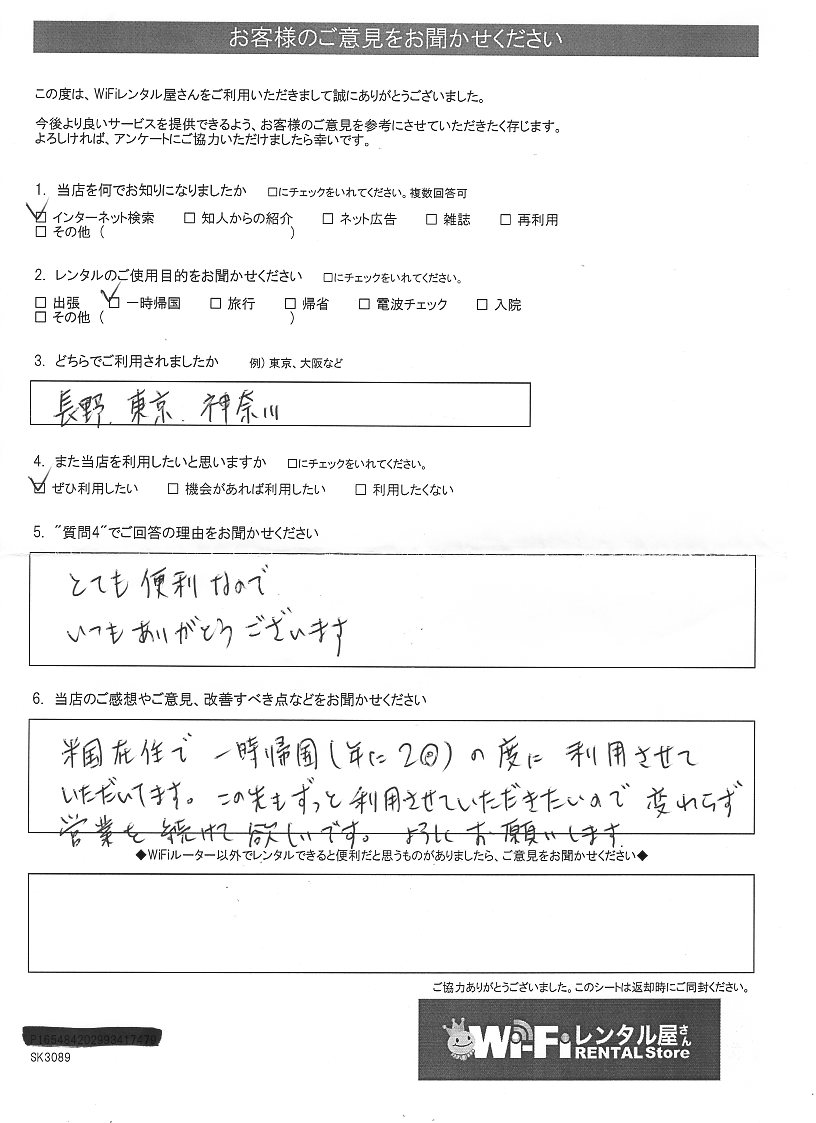 お客様のご意見をお聞かせください
この度は、WiFiレンタル屋さんをご利用いただきまして誠にありがとうございました。
今後より良いサービスを提供できるよう、お客様のご意見を参考にさせていただきたく存じます。
よろしければ、アンケートにご協力いただけましたら幸いです。
1. 当店を何でお知りになりましたか □にチェックをいれてください。複数回答可
☑ インターネット検索 □ 知人からの紹介 □ ネット広告 □ 雑誌 □ 再利用
□ その他 ( )
2. レンタルのご使用目的をお聞かせください □にチェックをいれてください。
□ 出張 ☑ 一時帰国 □ 旅行 □ 帰省 □ 電波チェック □ 入院
□ その他 ( )
3. どちらでご利用されましたか 例) 東京、大阪など
長野、東京、神奈川
4. また当店を利用したいと思いますか □にチェックをいれてください。
☑ ぜひ利用したい □ 機会があれば利用したい □ 利用したくない
5. "質問4"でご回答の理由をお聞かせください
とても便利なので
いつもありがとうございます
6. 当店のご感想やご意見、改善すべき点などをお聞かせください
米国在住で一時帰国(年に2回)の度に利用させて
いただいてます。この先もずっと利用させていただきたいので変わらず
営業を続けて欲しいです。よろしくお願いします
◆WiFiルーター以外でレンタルできると便利だと思うものがありましたら、ご意見をお聞かせください◆
ご協力ありがとうございました。このシートは返却時にご同封ください。
Wi-Fiレンタル屋さん
RENTAL Store
SK3089